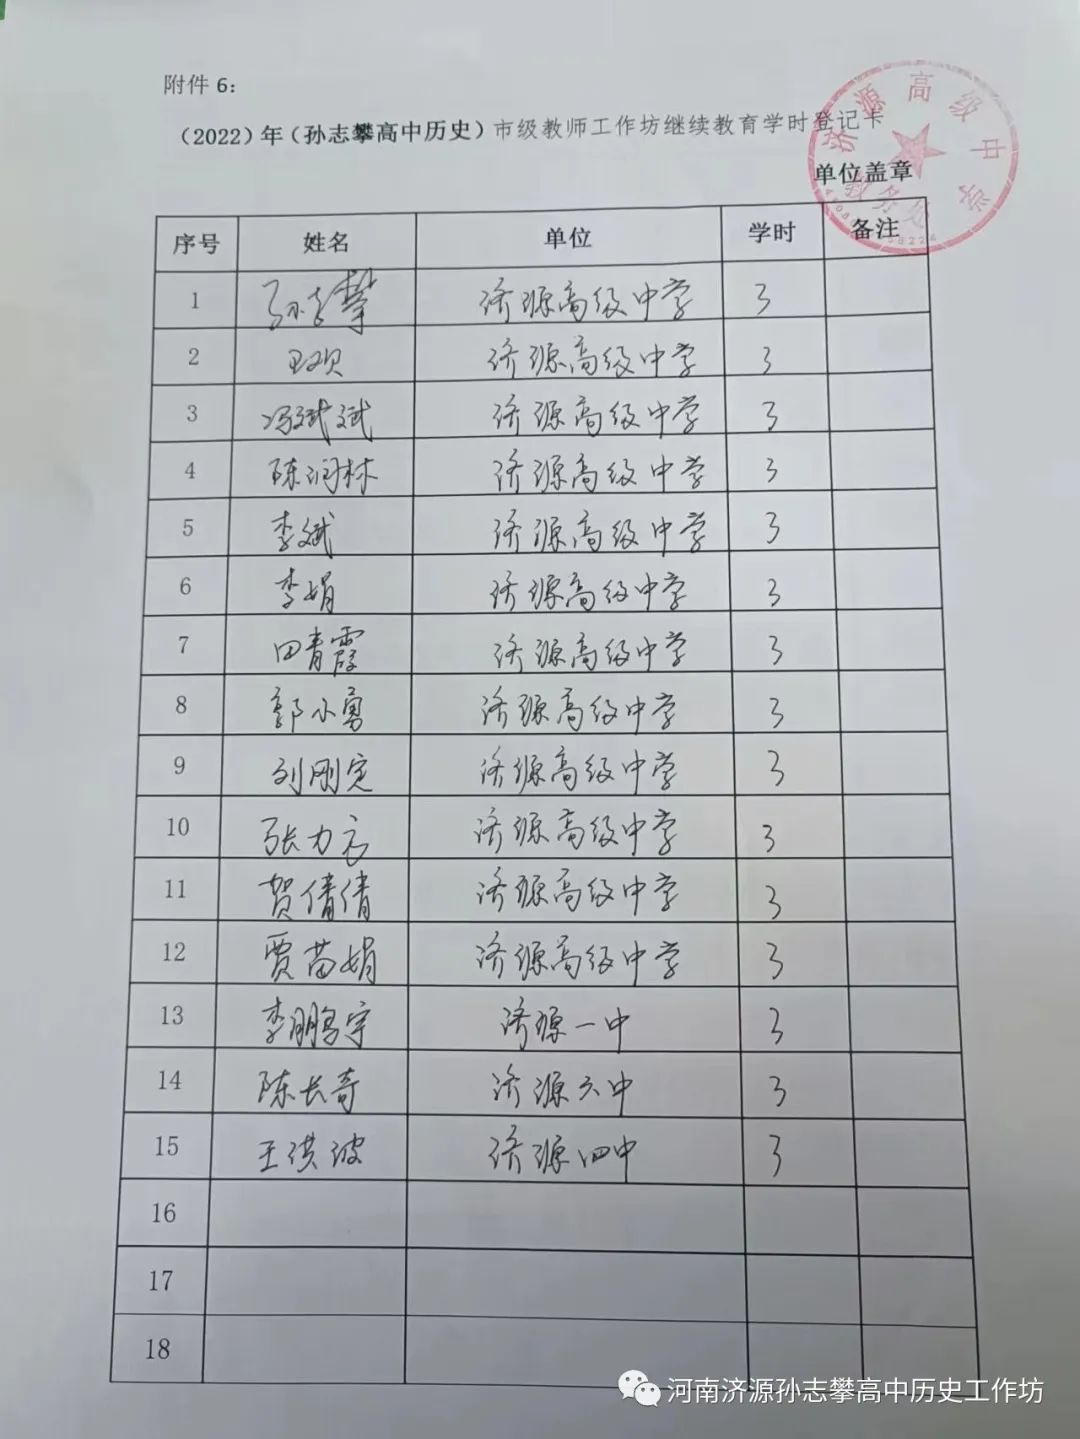 附件 6：
（2022）年（孙志攀高中历史）市级教师工作坊继续教育学时登记卡
单位盖章
济源高级中学
教务处
序号 姓名 单位 学时 备注
1 孙志攀 济源高级中学 3
2 王欢 济源高级中学 3
3 冯斌斌 济源高级中学 3
4 陈润林 济源高级中学 3
5 李斌 济源高级中学 3
6 李娟 济源高级中学 3
7 田青霞 济源高级中学 3
8 郭小勇 济源高级中学 3
9 刘刚定 济源高级中学 3
10 张力方 济源高级中学 3
11 贺倩倩 济源高级中学 3
12 贾苗娟 济源高级中学 3
13 李鹏宇 济源一中 3
14 陈长奇 济源六中 3
15 王洪波 济源四中 3
16
17
18
河南济源孙志攀高中历史工作坊